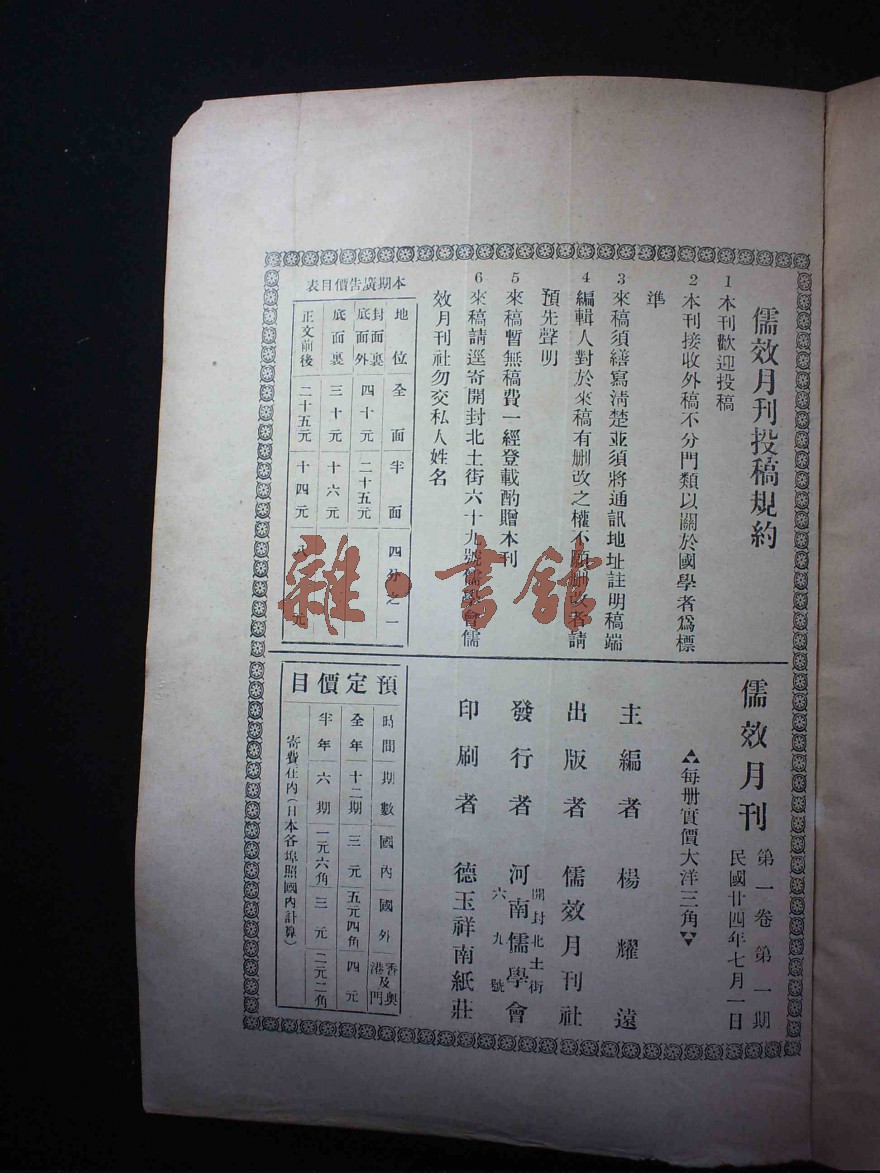 儒效月刊投稿規約
1 本刊歡迎投稿
2 本刊接收外稿不分門類以關於國學者爲標
準
3 來稿須繕寫淸楚並須將通訊地址註明稿端
4 編輯人對於來稿有刪改之權不願刪改者請
預先聲明
5 來稿暫無稿費一經登載酌贈本刊
6 來稿請逕寄開封北土街六十九號儒學會儒
效月刊社勿交私人姓名
本期廣告價目表
地位 全面 半面 四分之一
封面裏 底面外 四十元 二十五元
底面裏 三十元 十六元
正文前後 二十五元 十四元 八元
雜·書館
儒效月刊 第一卷第一期
民國廿四年七月一日
每册實價大洋三角
主編者 楊耀遠
出版者 儒效月刊社
開封北土街
發行者 河南儒學會
六九號
印刷者 德玉祥南紙莊
預定價目
時間 期數 國內 國外 香港及澳門
全年 十二期 三元 五元四角 四元
半年 六期 一元六角 三元 二元二角
寄費在內(日本各埠照國內計算)